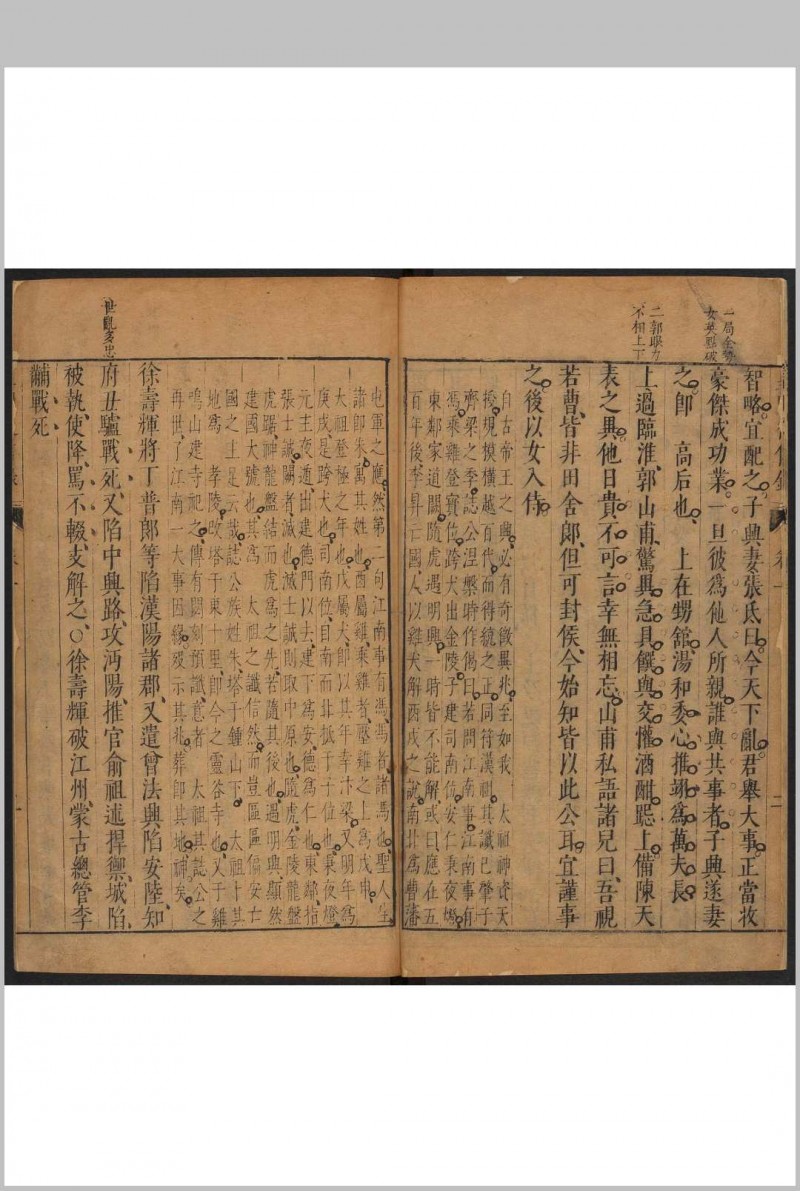 一局全勢
女英點破
二郭眼力
不相上下
智略宜配之子興妻張氏曰今天下亂君舉大事正當收
豪傑成功業一旦彼爲他人所親誰與共事者子興遂妻
之卽　高后也　上在甥舘湯和委心推翊爲萬夫長
上過臨淮郭山甫驚異急具饌與交懽酒酣跽上備陳天
表之異他日貴不可言幸無相忘山甫私語諸兒曰吾視
若曹皆非田舍郞但可封侯今始知皆以此公耳宜謹事
之後以女入侍
自古帝王之興必有奇徵異兆至如我　太祖神資天
授規模橫越百代而得統之正同符漢祖其讖已肇于
齊梁之季誌公涅槃時作偈曰若問江南事江南事有
馮乘雞登寶位跨犬出金陵子建司南位安仁秉夜燈
東鄰家道闕隨虎遇明興一時皆不能解或曰應在五
百年後李昇六國人以雞犬解酉戌之歲南北爲曹潘
屯軍之應然第二句江南事有馮馮者諸馮也聖人生
諸卽朱寓其姓也酉屬雞乘雞者壓雞之上爲戊申
太祖登極之年也戌屬犬卽以其年幸汴梁又明年爲
庚戌是跨犬也司南位自南而北扺于子位也秉夜燈
元主夜遁出建德門以去建下爲安德爲仁也東鄰指
張士誠闕者滅也滅士誠則取中原也隨虎金陵龍盤
虎踞神龍盤結而虎爲之先若隨其後也遇明興顯然
建國大號也其爲　太祖之讖信然而豈區區偏安亡
國之上足云哉誌公族姓朱塔于鍾山下　太祖卜其
地爲　孝陵改塔于東十里卽今之靈谷寺也又于雞
鳴山建寺祀之傳有閟刻預讖意者　太祖其誌公之
再世了江南一大事因緣歿示其兆葬卽其地神矣
徐壽輝將丁普郞等陷漢陽諸郡又遣曾法興陷安陸知
世亂多忠
府丑驢戰死又陷中興路攻沔陽推官俞祖述捍禦城陷
被執使降罵不輟支解之○徐壽輝破江州蒙古總管李
黼戰死